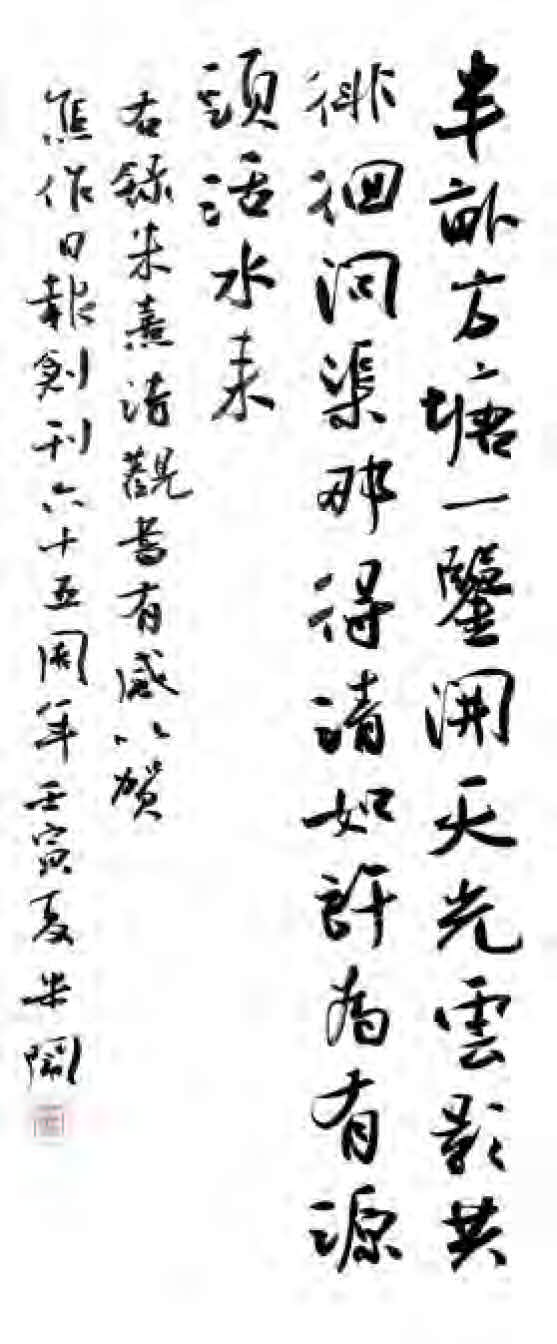 半畝方塘一鑒開天光雲影共
徘徊問渠那得清如許為有源
頭活水来
右録朱熹詩觀書有感以賀
焦作日報創刊六十五周年壬寅夏米鬧